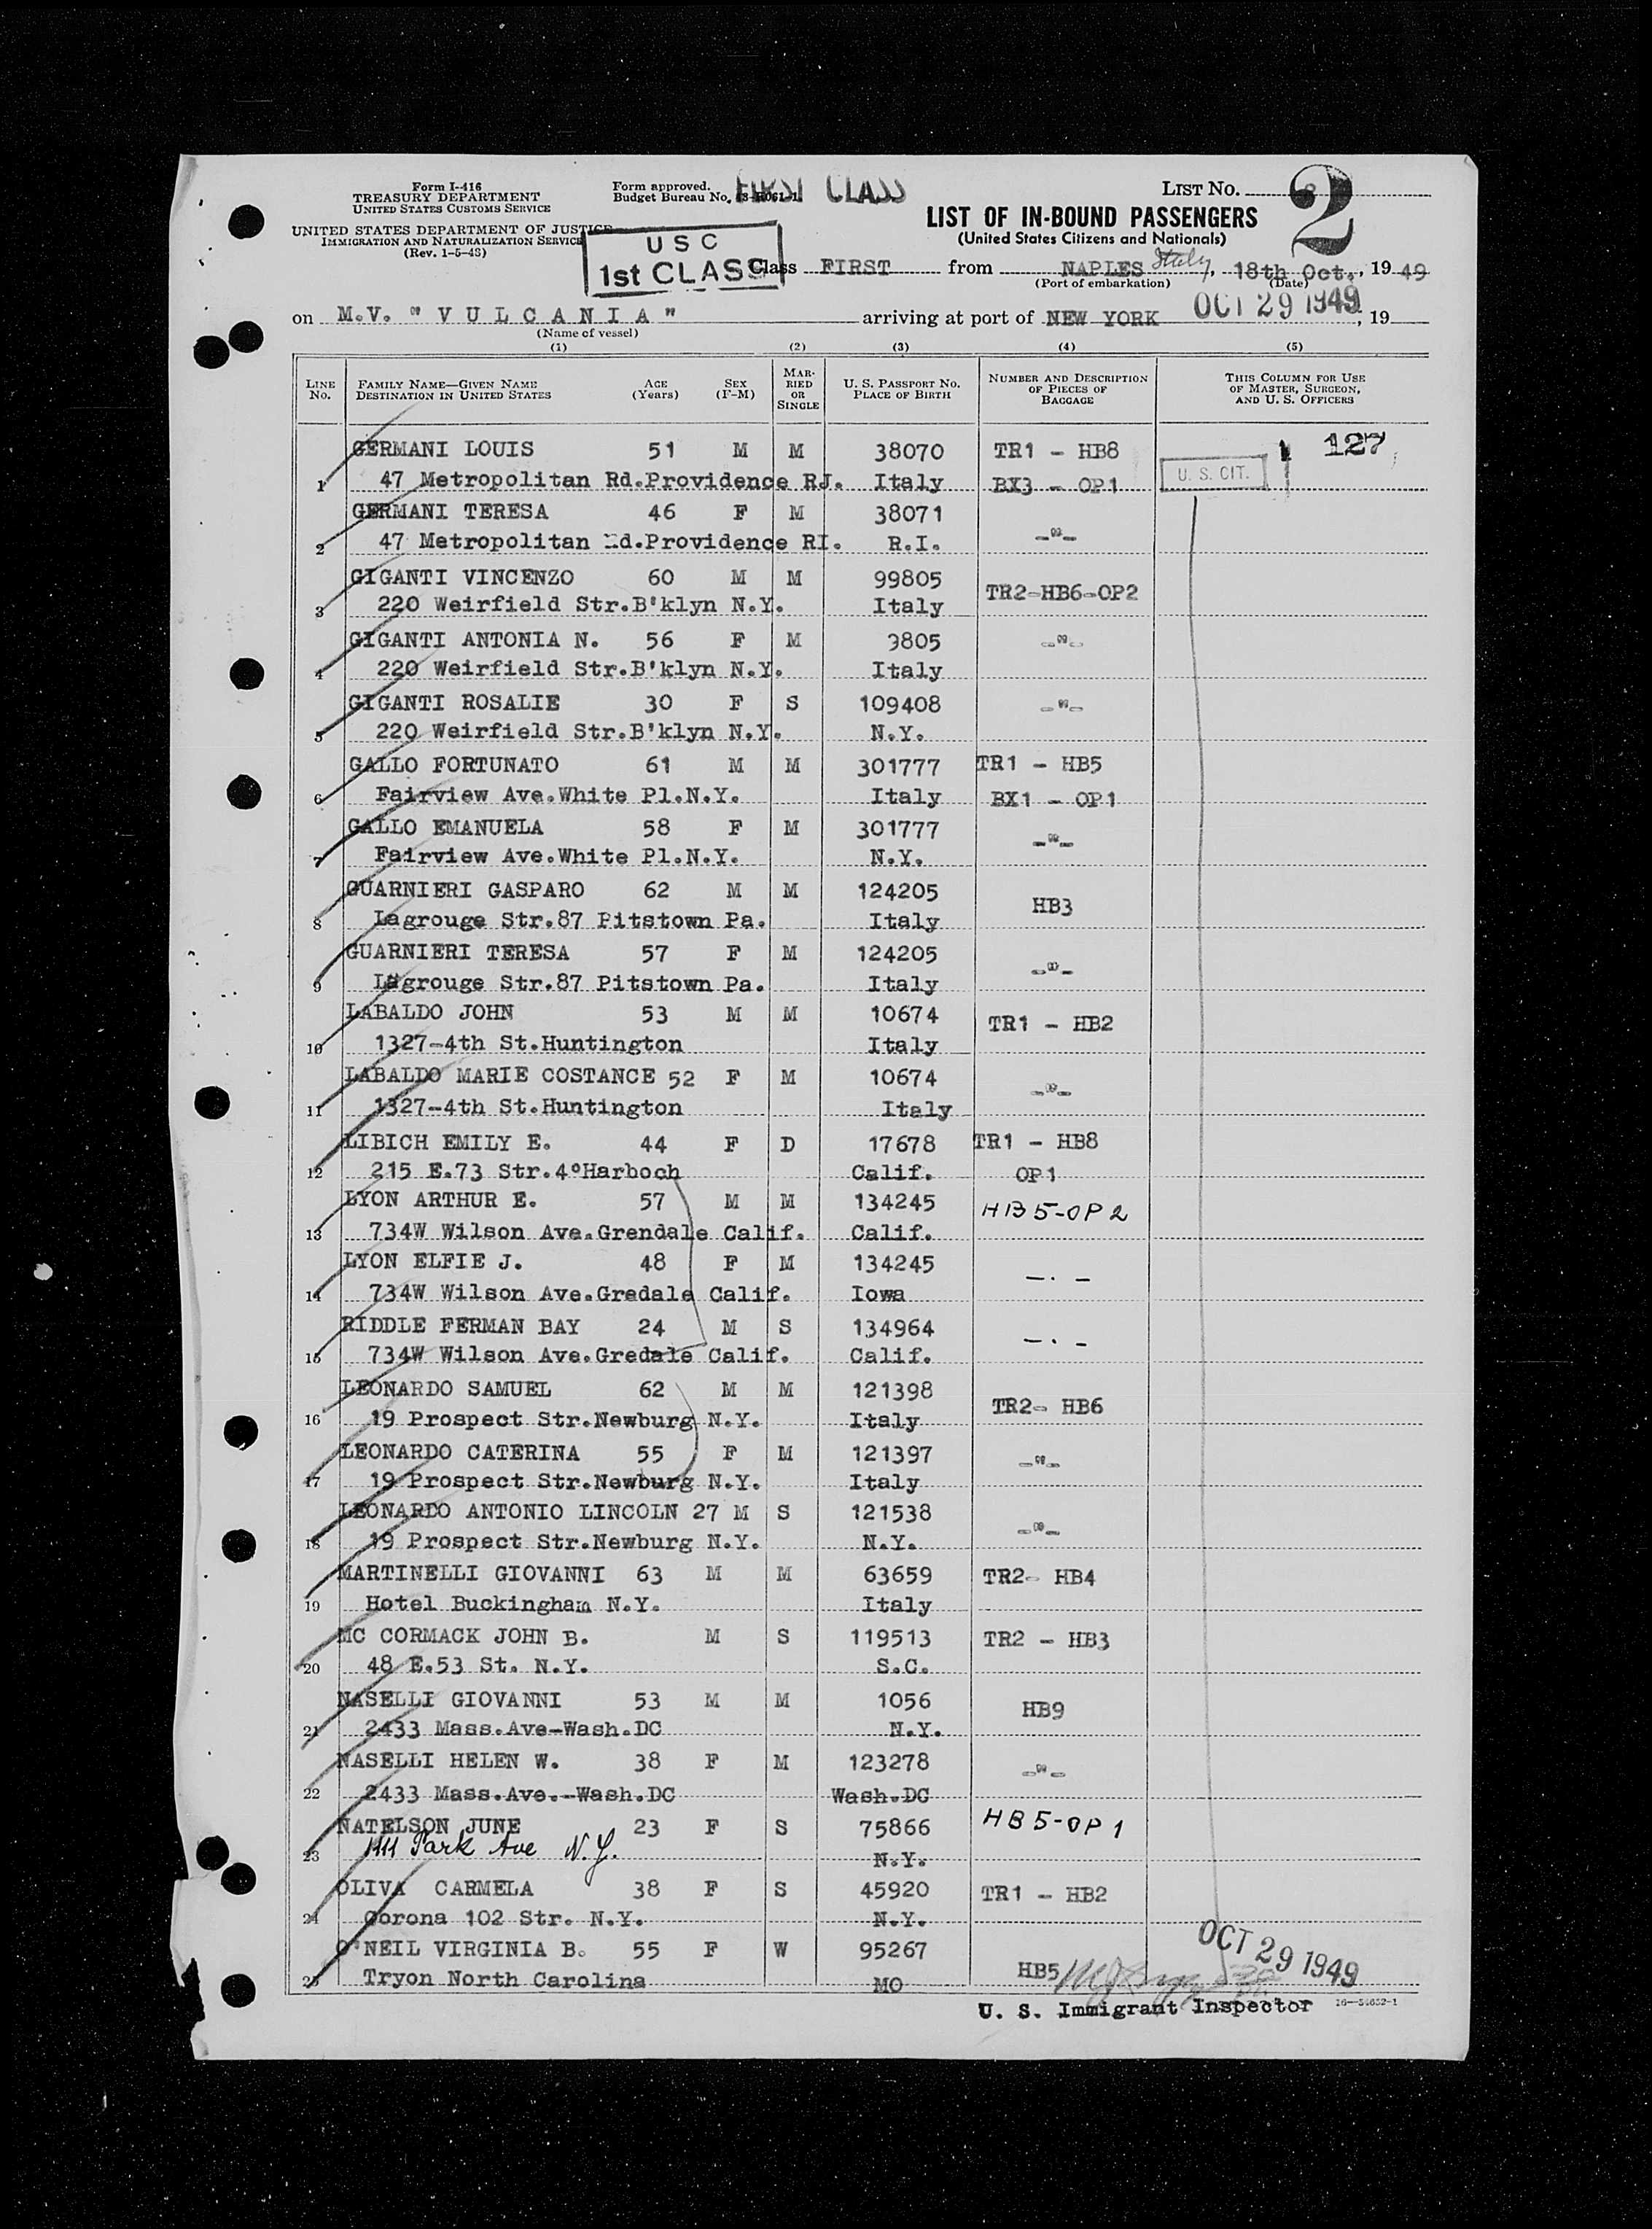 Form I-416
TREASURY DEPARTMENT
UNITED STATES CUSTOMS SERVICE
UNITED STATES DEPARTMENT OF JUSTICE
IMMIGRATION AND NATURALIZATION SERVICE
(Rev. 1-5-48)
Form approved.
Budget Bureau No.
FIRST CLASS
LIST NO.
2
LIST OF IN-BOUND PASSENGERS
(United States Citizens and Nationals)
U S C
1st CLASS
Class FIRST from NAPLES Italy, 18th Oct., 19 49
(Port of embarkation) (Date)
on M.V. "VULCANIA" arriving at port of NEW YORK OCT 29 1949, 19
(Name of vessel)
(1) (2) (3) (4) (5)
LINE NO. FAMILY NAME—GIVEN NAME DESTINATION IN UNITED STATES AGE (Years) SEX (F-M) MARRIED OR SINGLE U. S. PASSPORT NO. PLACE OF BIRTH NUMBER AND DESCRIPTION OF PIECES OF BAGGAGE THIS COLUMN FOR USE OF MASTER, SURGEON, AND U. S. OFFICERS
GERMANI LOUIS 51 M M 38070 TR1 - HB8 127
1 47 Metropolitan Rd.Providence RJ. Italy BX3 - OP1 U. S. CIT.
GERMANI TERESA 46 F M 38071 -"-
2 47 Metropolitan Rd.Providence RI. R.I.
GIGANTI VINCENZO 60 M M 99805 TR2-HB6-OP2
3 220 Weirfield Str.B'klyn N.Y. Italy
GIGANTI ANTONIA N. 56 F M 9805 -"-
4 220 Weirfield Str.B'klyn N.Y. Italy
GIGANTI ROSALIE 30 F S 109408 -"-
5 220 Weirfield Str.B'klyn N.Y. N.Y.
GALLO FORTUNATO 61 M M 301777 TR1 - HB5
6 Fairview Ave.White Pl.N.Y. Italy BX1 - OP1
GALLO EMANUELA 58 F M 301777 -"-
7 Fairview Ave.White Pl.N.Y. N.Y.
GUARNIERI GASPARO 62 M M 124205 HB3
8 Lagrouge Str.87 Pitstown Pa. Italy
GUARNIERI TERESA 57 F M 124205 -"-
9 Lagrouge Str.87 Pitstown Pa. Italy
LABALDO JOHN 53 M M 10674 TR1 - HB2
10 1327-4th St.Huntington Italy
LABALDO MARIE COSTANCE 52 F M 10674 -"-
11 1327-4th St.Huntington Italy
LIBICH EMILY E. 44 F D 17678 TR1 - HB8
12 215 E.73 Str.4°Harboch Calif. OP1
LYON ARTHUR E. 57 M M 134245 HB5-OP2
13 734W Wilson Ave.Grendale Calif. Calif.
LYON ELFIE J. 48 F M 134245 -.-
14 734W Wilson Ave.Gredale Calif. Iowa
RIDDLE FERMAN BAY 24 M S 134964 -.-
15 734W Wilson Ave.Gredale Calif. Calif.
LEONARDO SAMUEL 62 M M 121398 TR2- HB6
16 19 Prospect Str.Newburg N.Y. Italy
LEONARDO CATERINA 55 F M 121397 -"-
17 19 Prospect Str.Newburg N.Y. Italy
LEONARDO ANTONIO LINCOLN 27 M S 121538 -"-
18 19 Prospect Str.Newburg N.Y. N.Y.
MARTINELLI GIOVANNI 63 M M 63659 TR2- HB4
19 Hotel Buckingham N.Y. Italy
MC CORMACK JOHN B. M S 119513 TR2 - HB3
20 48 E.53 St. N.Y. S.C.
NASELLI GIOVANNI 53 M M 1056 HB9
21 2433 Mass.Ave-Wash.DC N.Y.
NASELLI HELEN W. 38 F M 123278 -"-
22 2433 Mass.Ave.-Wash.DC Wash.DC
NATELSON JUNE 23 F S 75866 HB5-OP1
23 1111 Park Ave N.Y. N.Y.
OLIVA CARMELA 38 F S 45920 TR1 - HB2
24 Corona 102 Str. N.Y. N.Y.
O'NEIL VIRGINIA B. 55 F W 95267 HB5 OCT 29 1949
25 Tryon North Carolina MO
U. S. Immigrant Inspector 16—54652-1